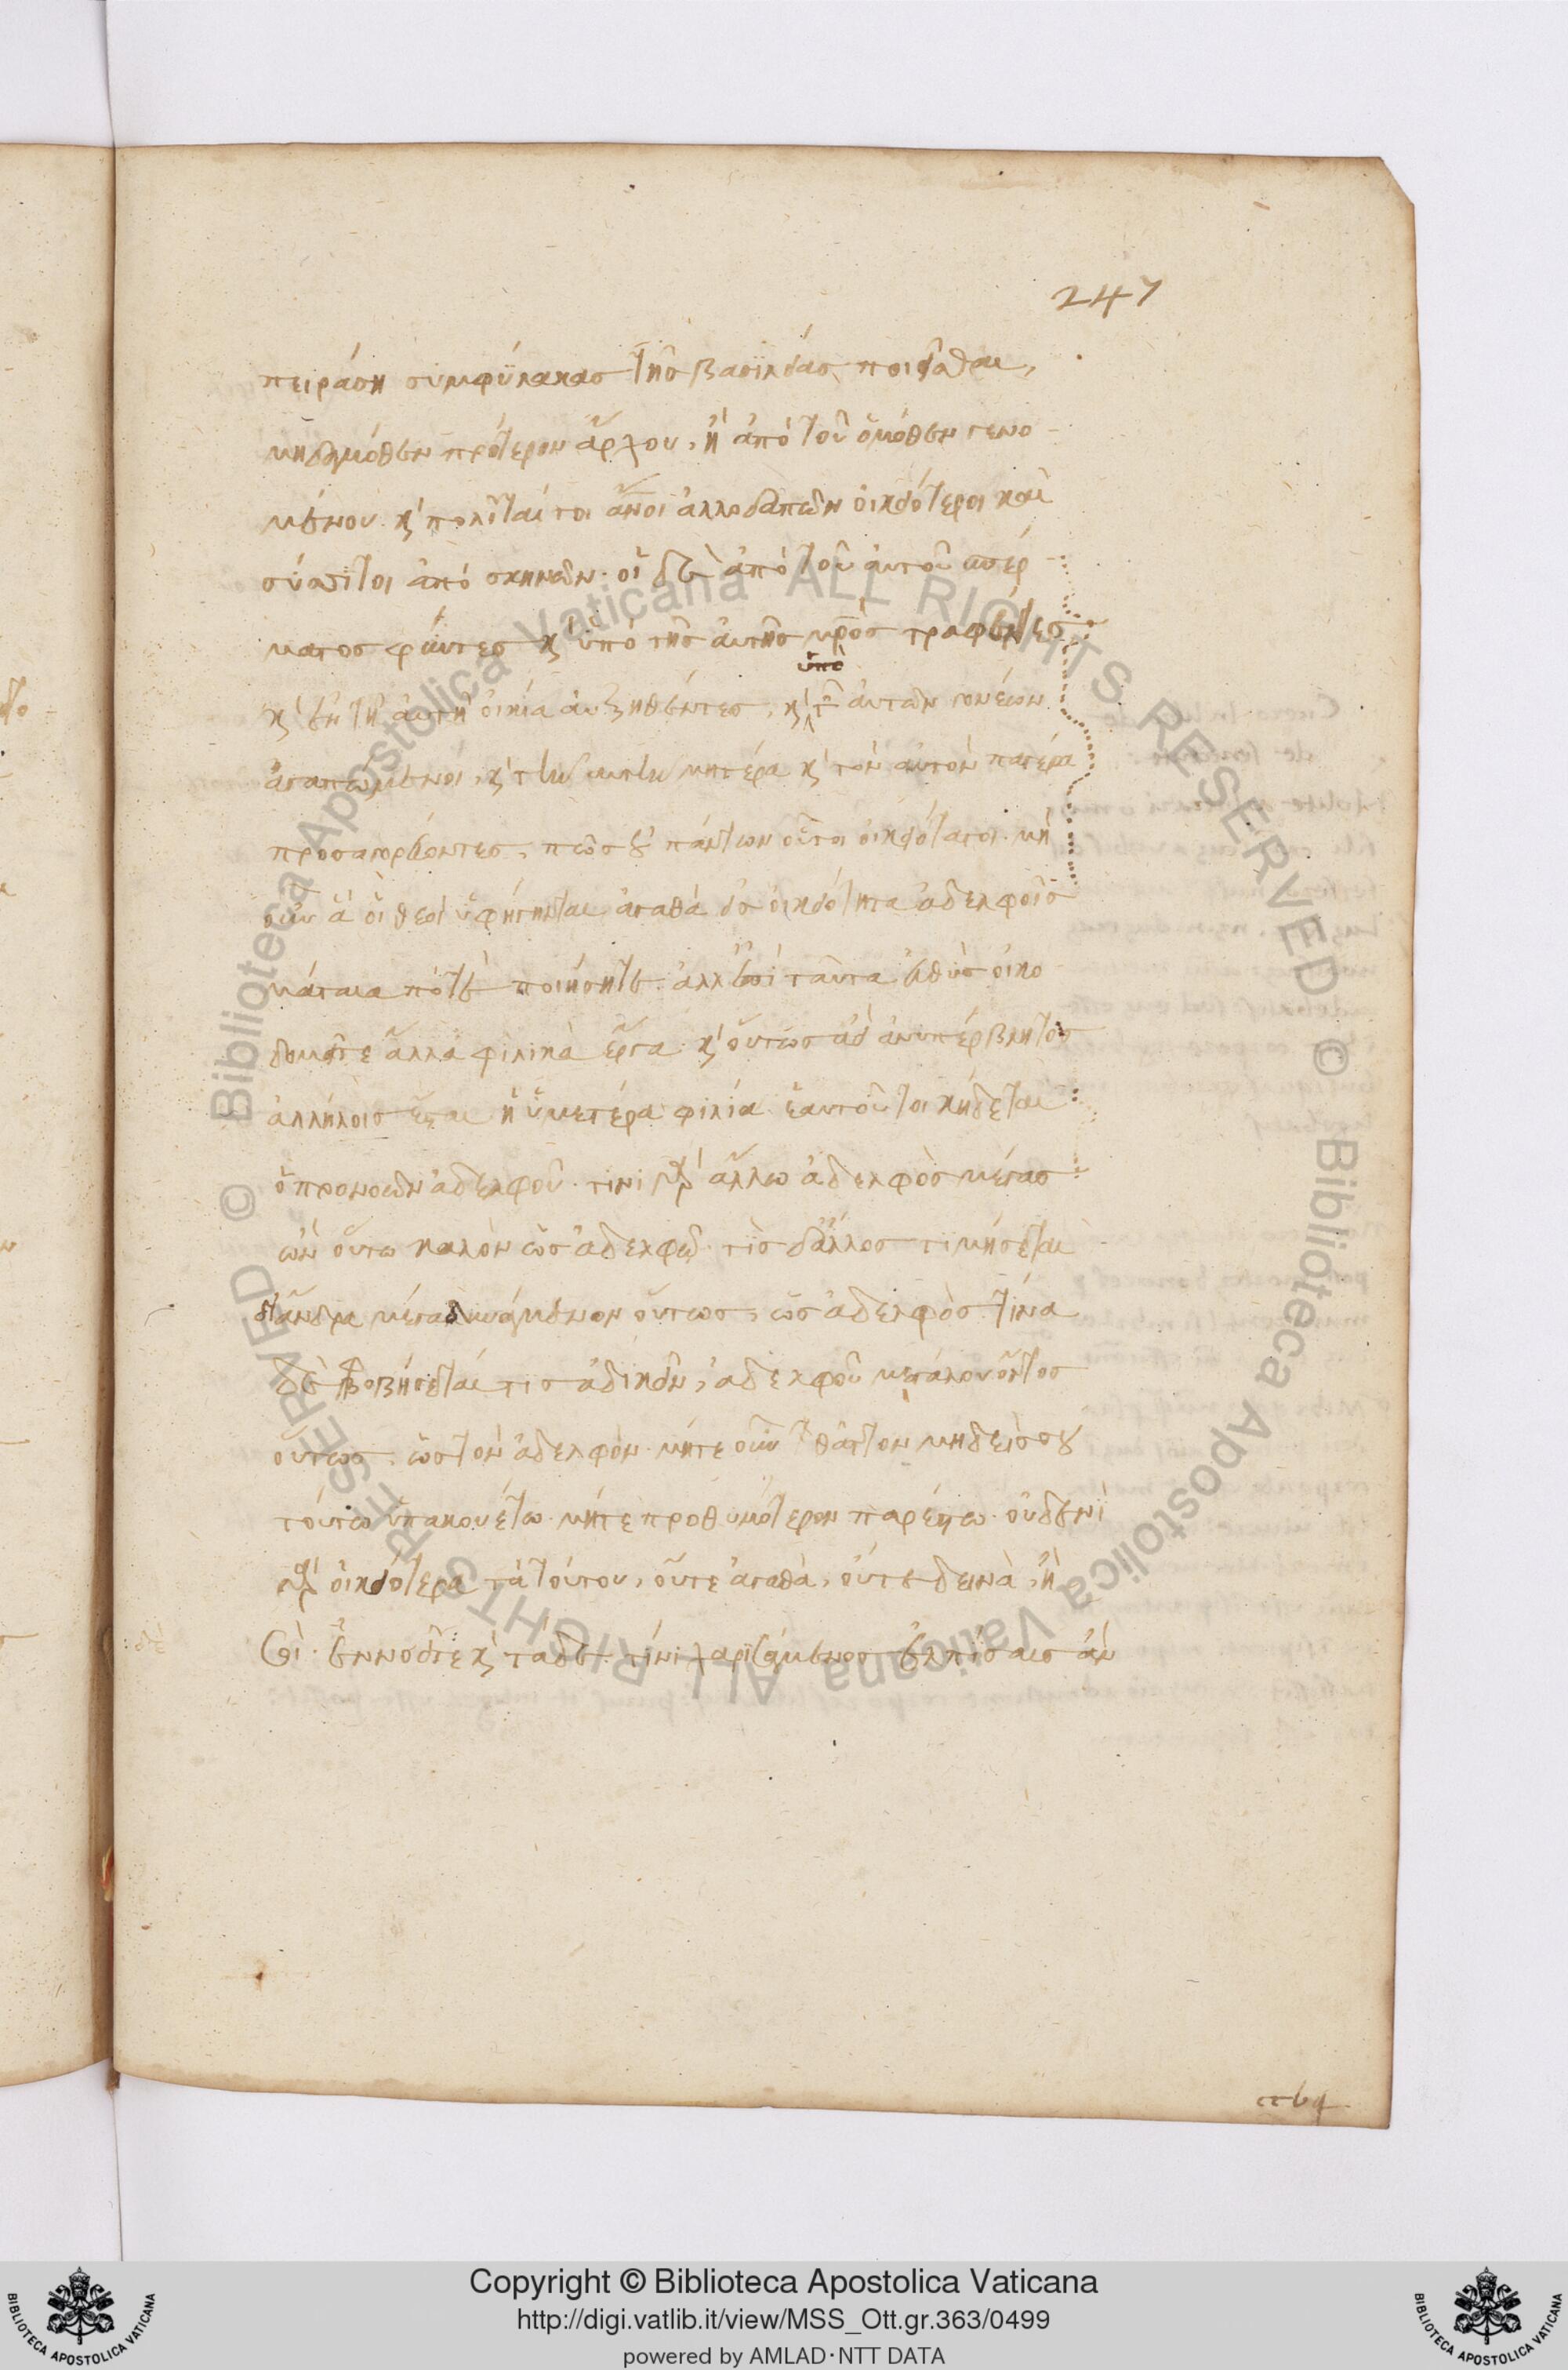 247
πειράση συμφύλακας τῆς βασιλείας ποιεῖσθαι,
μηδαμόθεν πρότερον ἄρχου, ἢ ἀπὸ τοῦ ὁμόθεν γενο
μένου. κ' πολῖταί τοι ἄνοι ἀλλοδαπῶν οἰκειότεροι καὶ
σύσσιτοι ἀπὸ σκηνῶν. οἱ δὲ ἀπὸ τοῦ αὐτοῦ σπέρ
ματος φύντες κ' ὑπὸ τῆς αὐτῆς μρὸς τραφέντες
κ' ἐν τῇ αὐτῇ οἰκία αὐξηθέντες, κ' ὑπὸ τῶν αὐτῶν γονέων
ἀγαπώμενοι, κ' τὴν αὐτὴν μητέρα κ' τὸν αὐτὸν πατέρα
προσαγορεύοντες, πῶς οὐ πάντων οὗτοι οἰκειότατοι. μὴ
οὖν ἃ οἱ θεοὶ ὑφήγηνται ἀγαθὰ εἰς οἰκειότητα ἀδελφοῖς
μάταια πότε ποιήσητε. ἀλλ' ἐπὶ ταῦτα εὐθὺς οἰκο
δομεῖτε ἄλλα φιλικὰ ἔργα. κ' οὕτως ἀεὶ ἀνυπέρβλητος
ἀλλήλοις ἔσται ἡ ὑμετέρα φιλία. ἑαυτοῦ τοι κήδεται
ὁ προνοῶν ἀδελφοῦ. τίνι γὰρ ἄλλω ἀδελφὸς μέγας
ὢν οὕτω καλὸν ὡς ἀδελφῶ. τίς δ' ἄλλος τιμήσεται
δι' ἄνδρα μέγα δυνάμενον οὕτως, ὡς ἀδελφὸς. τίνα
δὲ φοβήσεταί τις ἀδικεῖν, ἀδελφοῦ μεγάλου ὄντος
οὕτως. ὡς τὸν ἀδελφόν. μήτε οὖν θᾶττον μηδεὶς σοῦ
τούτω ὑπακουέτω. μήτε προθυμότερον παρέστω. οὐδενὶ
γὰρ οἰκειότερα τὰ τούτου, οὔτε ἀγαθὰ, οὔτε δεινὰ, ἢ
σοὶ. ἐννοεῖτε κ' τάδε. τίνι χαρισάμενος ἐλπίσαις ἂν
Copyright © Biblioteca Apostolica Vaticana
http://digi.vatlib.it/view/MSS_Ott.gr.363/0499
powered by AMLAD·NTT DATA